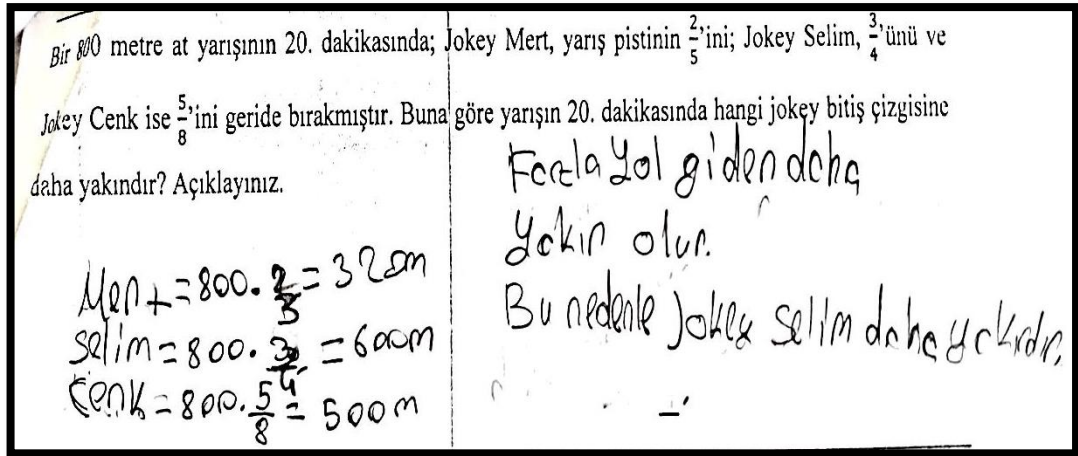 Bir 800 metre at yarışının 20. dakikasında; Jokey Mert, yarış pistinin 2/5'ini; Jokey Selim, 3/4'ünü ve
Jokey Cenk ise 5/8'ini geride bırakmıştır. Buna göre yarışın 20. dakikasında hangi jokey bitiş çizgisine
daha yakındır? Açıklayınız.
Mert=800.2/5=320m
Selim=800.3/4=600m
Cenk=800.5/8=500m
Fazla yol giden daha
yakın olur.
Bu nedenle Jokey Selim daha yakındır.